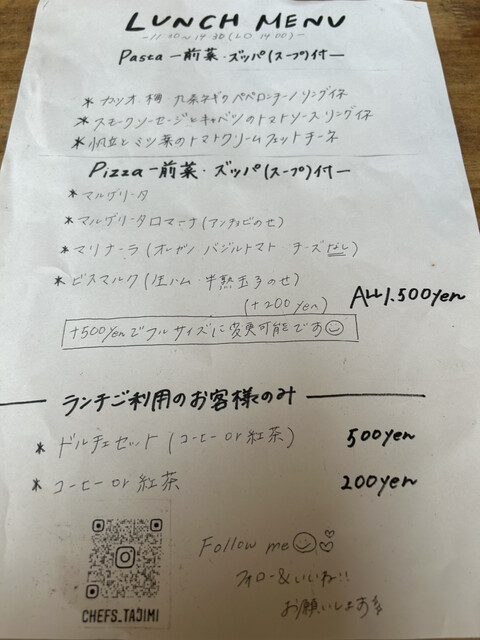 LUNCH MENU
-11:30~14:30(LO 14:00)-
Pasta ー前菜・ズッパ(スープ)付ー
* カツオ・梅・九条ネギのペペロンチーノ リングイネ
* スモークソーセージとキャベツのトマトソース リングイネ
* 帆立とミツ葉のトマトクリームフェットチーネ
Pizza ー前菜・ズッパ(スープ)付ー
* マルゲリータ
* マルゲリータロマーナ(アンチョビのせ)
* マリナーラ(オレガノ バジルトマト チーズなし)
* ビスマルク(生ハム・半熟玉子のせ)
(+200yen)
ALL 1.500yen
+500yenでフルサイズに変更可能です
ランチご利用のお客様のみ
* ドルチェセット(コーヒー or 紅茶) 500yen
* コーヒー or 紅茶 200yen
CHEFS_TAJIMI
Follow me
フォロー&いいね!!
お願いします